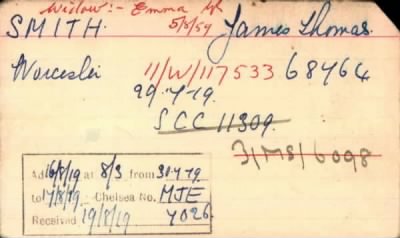 Widow:- Emma
5/8/59
SMITH. James Thomas.
Worcester 11/W/117533 68464
29.7.19.
SCC 11309.
3/MS/6098
Ad 16/8/19 at 8/3 from 30.7.19
to 17/8/79 Chelsea No. MJE
Received 19/8/19 7026